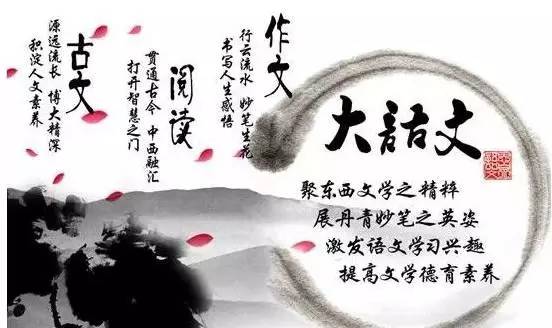 作文
行云流水 妙笔生花
书写人生感悟
阅读
贯通古今 中西融汇
打开智慧之门
古文
源远流长 博大精深
积淀人文素养
大語文
聚东西文学之精粹
展丹青妙笔之英姿
激发语文学习兴趣
提高文学德育素养